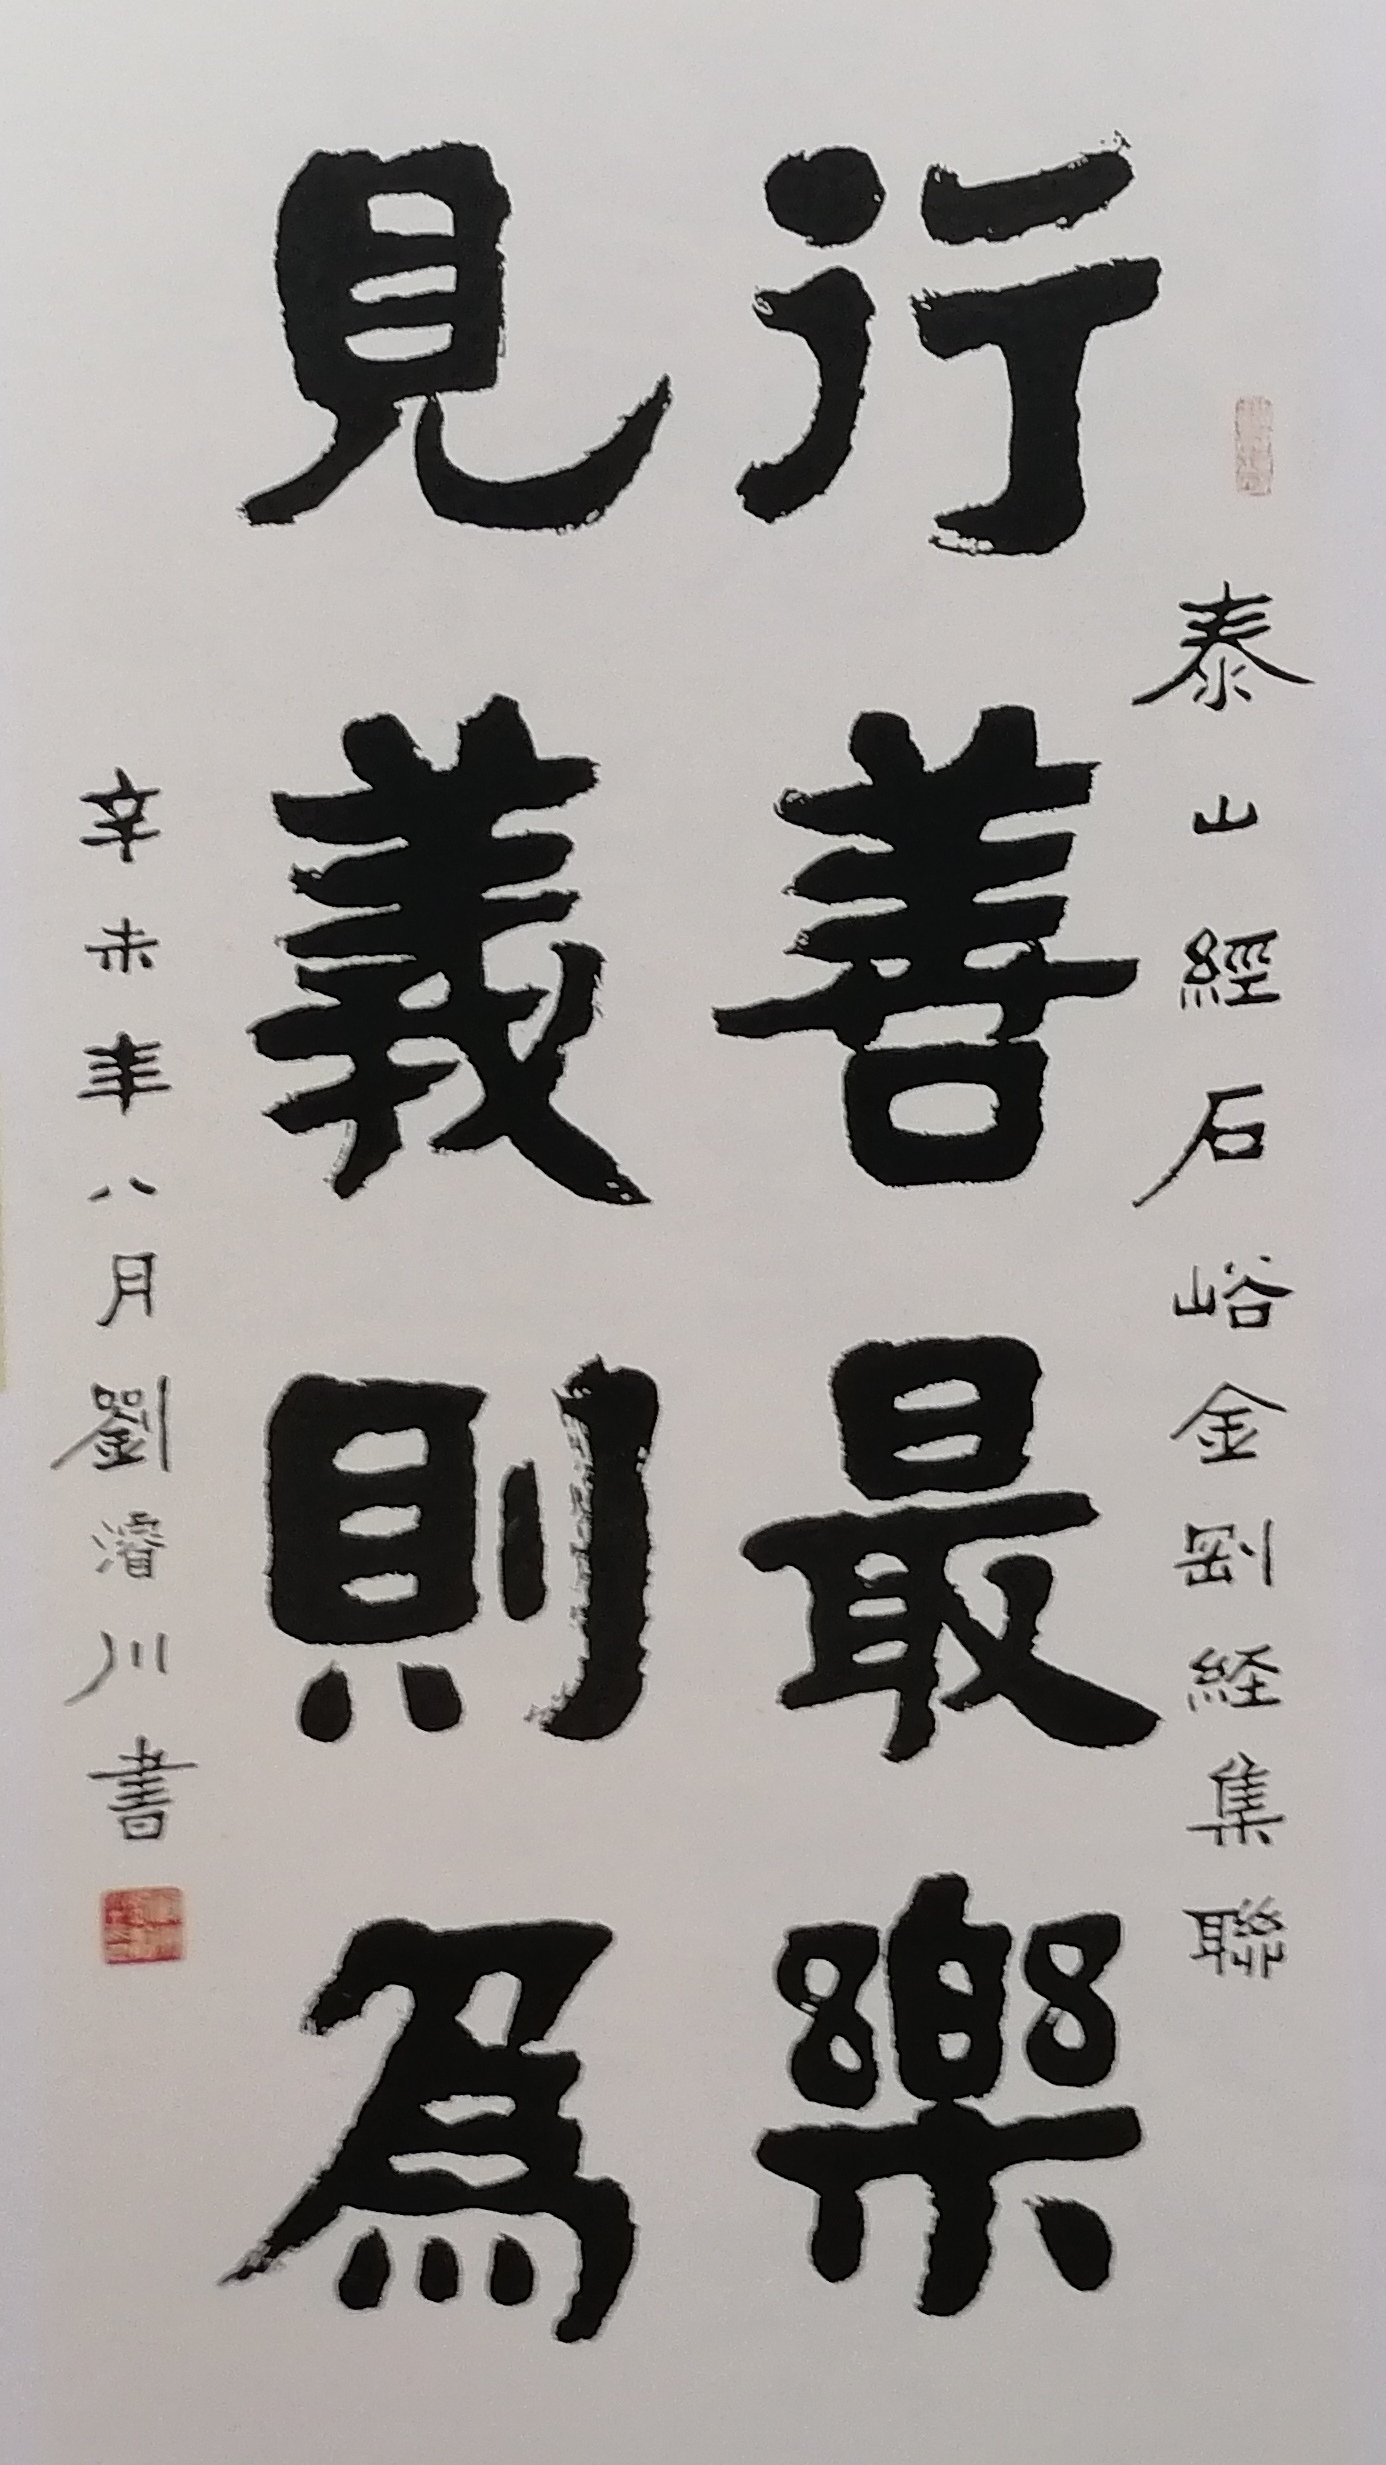 泰山經石峪金剛経集聯
行善最樂
見義則為
辛未年八月劉濬川書